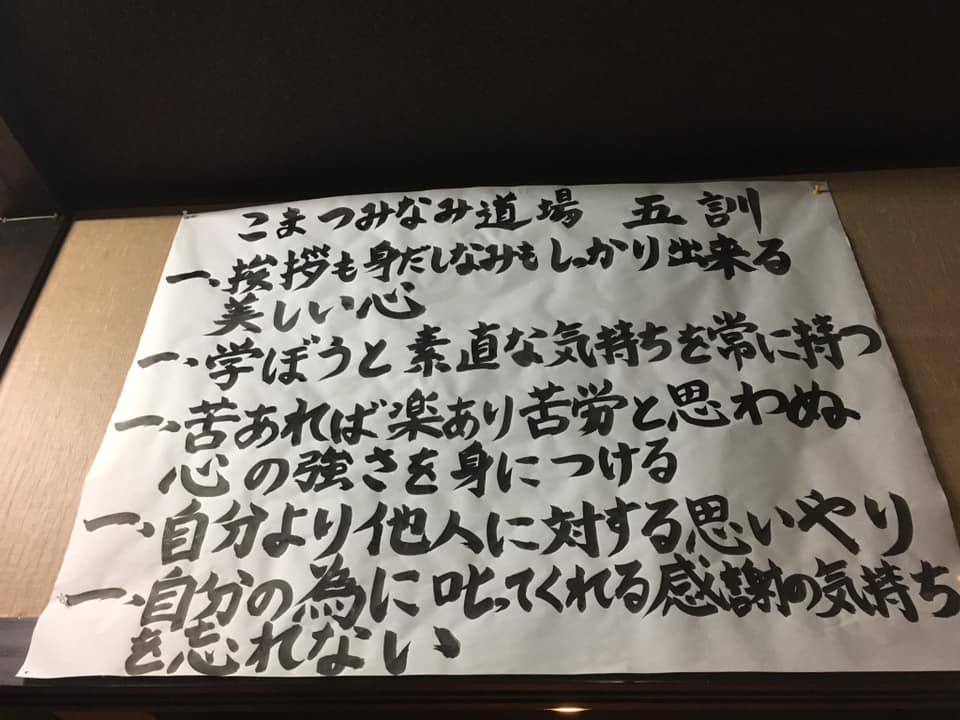 こまつみなみ道場 五訓
一、挨拶も身だしなみもしっかり出来る
美しい心
一、学ぼうと素直な気持ちを常に持つ
一、苦あれば楽あり苦労と思わぬ
心の強さを身につける
一、自分より他人に対する思いやり
一、自分の為に叱ってくれる感謝の気持ち
を忘れない